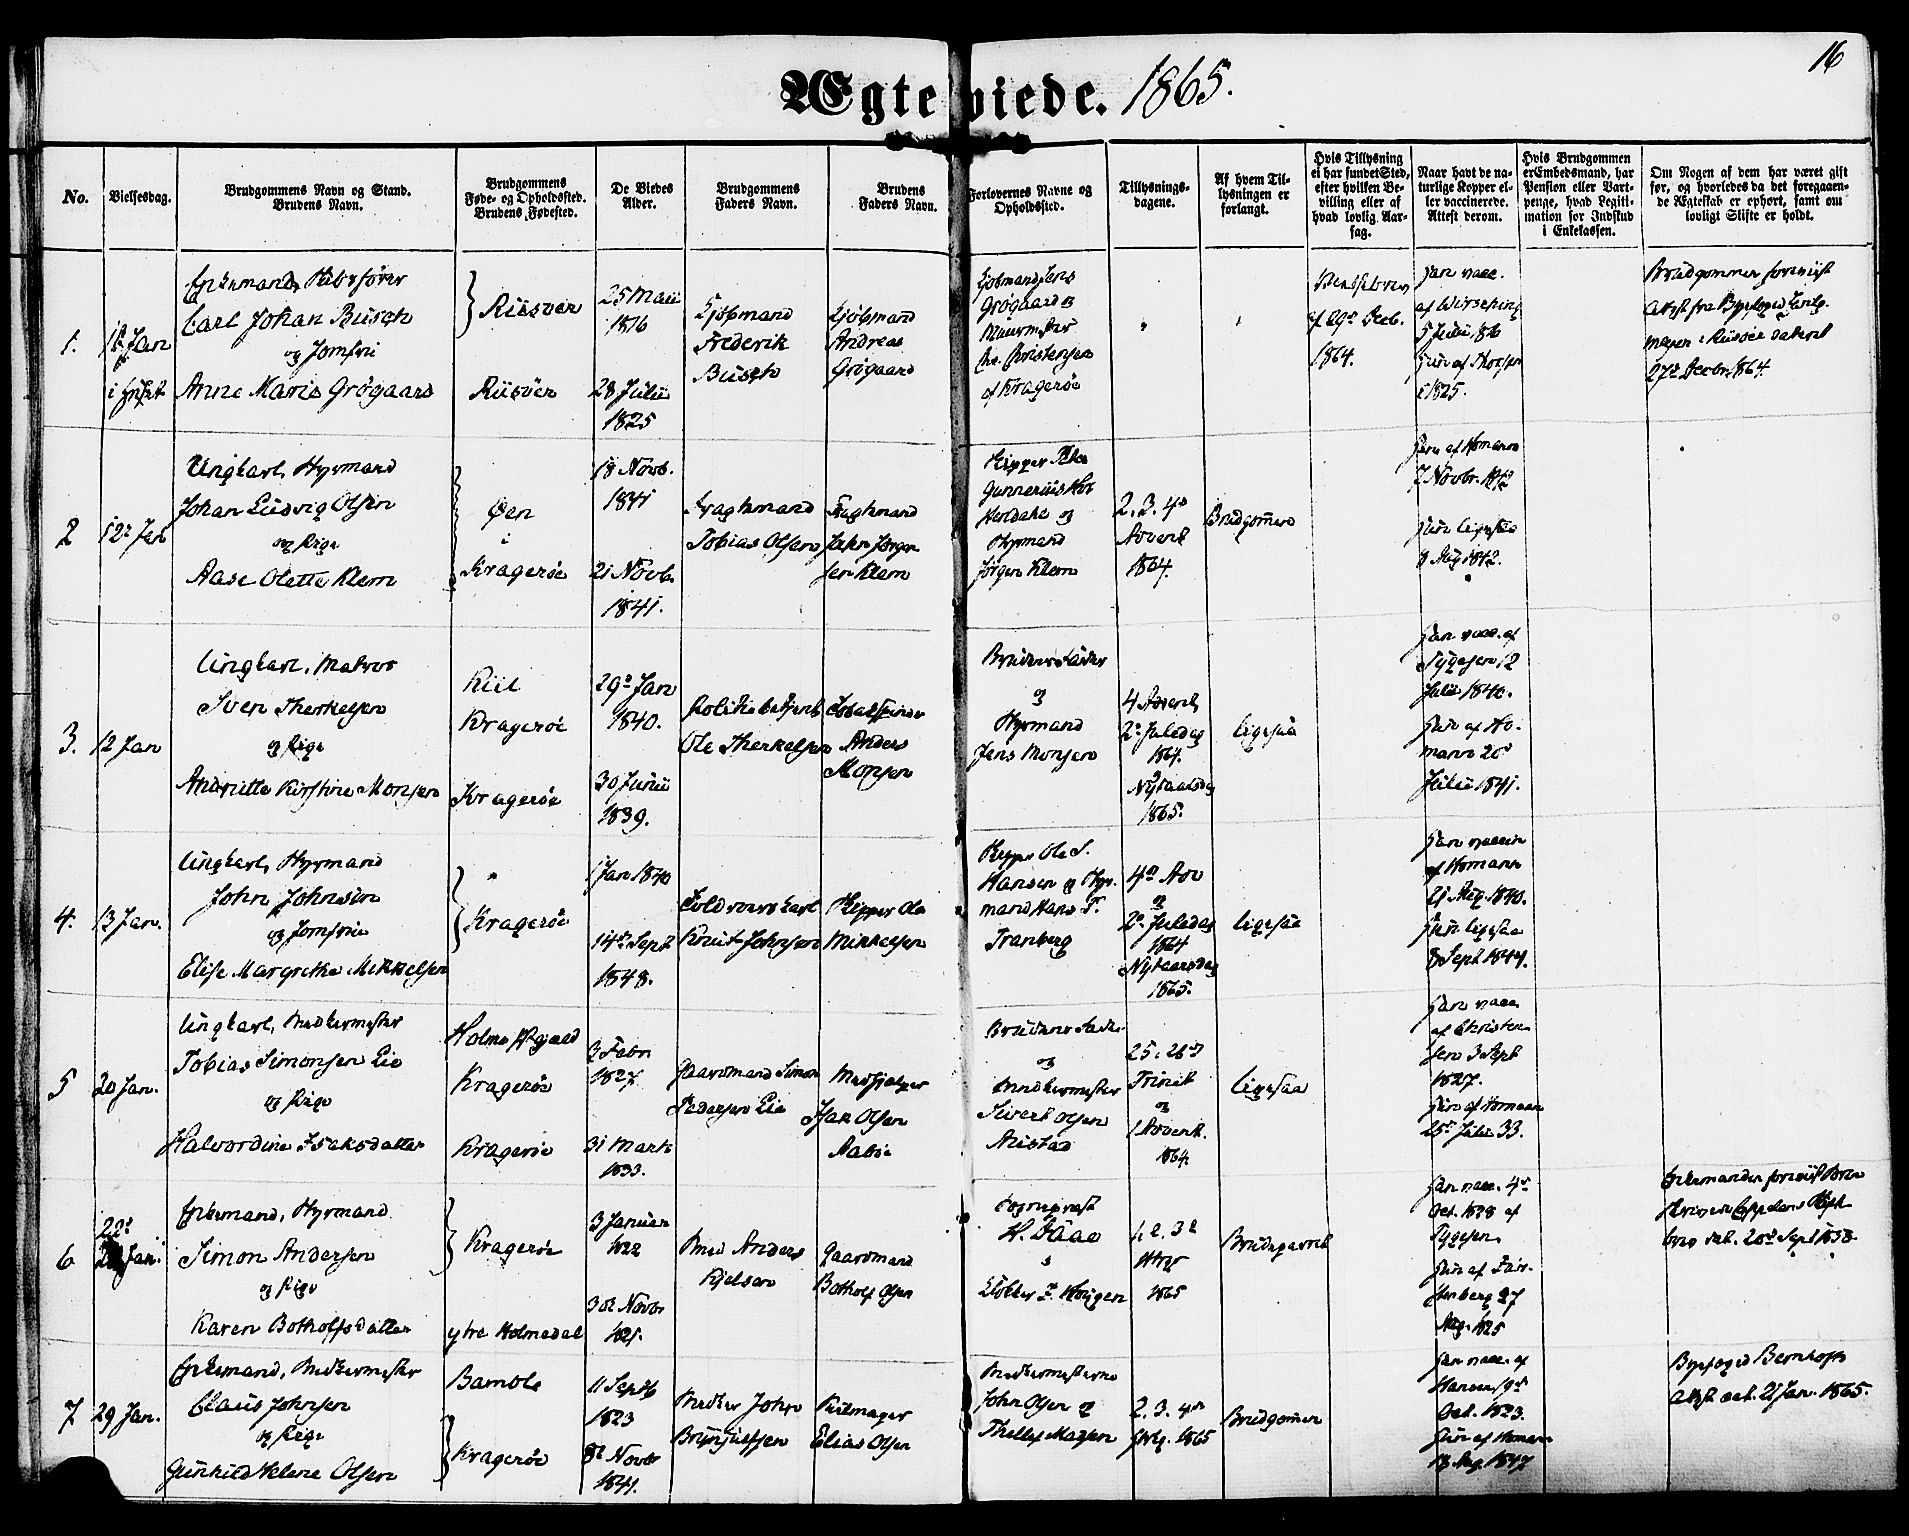 16
Ægteviede. 1865.
No.
Vielsesdag.
Brudgommens Navn og Stand.
Brudens Navn.
Brudgommens
Føde- og Opholdssted.
Brudens Fødested.
De Viedes
Alder.
Brudgommens
Faders Navn.
Brudens
Faders Navn.
Forlovernes Navne og
Opholdssted.
Tillysnings-
dagene.
Af hvem Til-
lysningen er
forlangt.
Hvis Tillysning
ei har fundet Sted,
efter hvilken Be-
villing eller af
hvad lovlig Aar-
sag.
Naar havt de na-
turlige Kopper el-
ler vaccinerede.
Attest derom.
Hvis Brudgommen
er Embedsmand, har
Pension eller Vart-
penge, hvad Legiti-
mation for Indskud
i Enkekassen.
Om Nogen af dem har været gift
før, og hvorledes da det foregaaen-
de Ægteskab er ophørt, samt om
lovligt Skifte er holdt.
1.
Jan
Enkemand, Skibsfører
Carl Johan Busch
og Jomfru
Anne Marie Grögaard
Riisöer
Riisöer
25 Maii
1816
28 Julii
1825
Kjöbmand
Frederik
Busch
Kjöbmand
Andreas
Grögaard
Kjöbmand Jens
Grögaard og
Muurmester
Christensen
af Kragerøe
af 29de Decb.
1864.
han vacc.
5 Julii 1816
hun af
1825.
Brudgommen foreviist
Attest fra
i Riisöer dateret
27de Decbr. 1864.
2
12te Jan
Ungkarl, Styrmand
Johan Ludvig Olsen
og Pige
Aase Olette Klem
Øen
i
Kragerøe
18 Novb.
1841
21 Novb.
1841.
Fragtmand
Tobias Olsen
Fragtmand
Jørgen
sen Klem
Skipper
Gunnerius
Herdahl og
Styrmand
Jörgen Klem
2. 3. 4de
Advent
1864.
Brudgommen
han af Homann
7 Novbr. 1842
hun ligesaa
8 Aug 1842.
3.
12 Jan
Ungkarl, Matros
Sven Therkelsen
og Pige
Andrietta Kirstine Monsen
Kiil
Kragerøe
Kragerøe
29de Jan
1840.
30 Junii
1839.
Politiebetjent
Ole Therkelsen
Anders
Monsen
Brudens Fader
og
Styrmand
Jens Monsen
4 Advent
2den Juledag
1864.
og
Nytaarsdag
1865.
ligesaa
han vacc. af
Tygesen 12
Julii 1840.
hun af Ho-
mann 20de
Julii 1841.
4.
13 Jan.
Ungkarl, Styrmand
John Johnsen
og Jomfrue
Elise Margrethe Mikkelsen
Kragerøe
1 Jan 1840
14de Sept
1843.
Knut Johnsen
Skipper Ole
Mikkelsen
Skipper Ole S.
Hansen og Styr-
mand Hans T.
Tranberg
4de Adv
og
2den Juledag
1864
Nytaarsdag
1865.
ligesaa
han vaccin
af Homann
21 Aug. 1840.
hun ligesaa
8 Sept 1844.
5
20 Jan.
Ungkarl, Snedkermester
Tobias Simonsen Eie
og Pige
Halvordine Isaksdatter
Holme Præstegjeld
Kragerøe
Kragerøe
3 Febr
1827
31 Marts
1833.
Gaardmand Simon
Pedersen Eie
Isak Olsen
Brudens Fader
og
Snedkermester
Sivert Olsen
25. 26de
Trinit
og
1 Advent.
1864
ligesaa
han vacc
af Christen
sen 3 Sept
1827.
hun af Homann
25de Julii 33.
6
22de
Jan.
Enkemand, Styrmand
Simon Andersen
og Pige
Karen Botholfsdatter
Kragerøe
ytre Holmedal
3 Januar
1822
30te Novbr
1821.
Smed Anders
Kjelsen
Gaardmand
Botholf Olsen
Sogneprest
H. Faae
&
Klokker Haugen
1. 2. 3de
1865
Brudeparret
han vacc. 4de
Oct. 1828 af
Tygesen
hun af
27
Aug. 1825
Enkemanden foreviist
20de Sept 1858.
7
29 Jan.
Enkemand, Snedkermester
Claus Johnsen
og Pige
Gunhild Helene Olsen
Bamble
Kragerøe
11 Septb
1823
8de Novbr
1841.
Snedker John
Brynjulfsen
Elias Olsen
Snedkermesterne
John Olsen og
Thellef Madsen
2. 3. 4de
1865
Brudgommen
han vacc. af
Hansen 19de
Oct. 1823.
hun af Homann
13 Aug. 1847
Byfoged Bernhoft
Attest dat. 21 Jan. 1865.